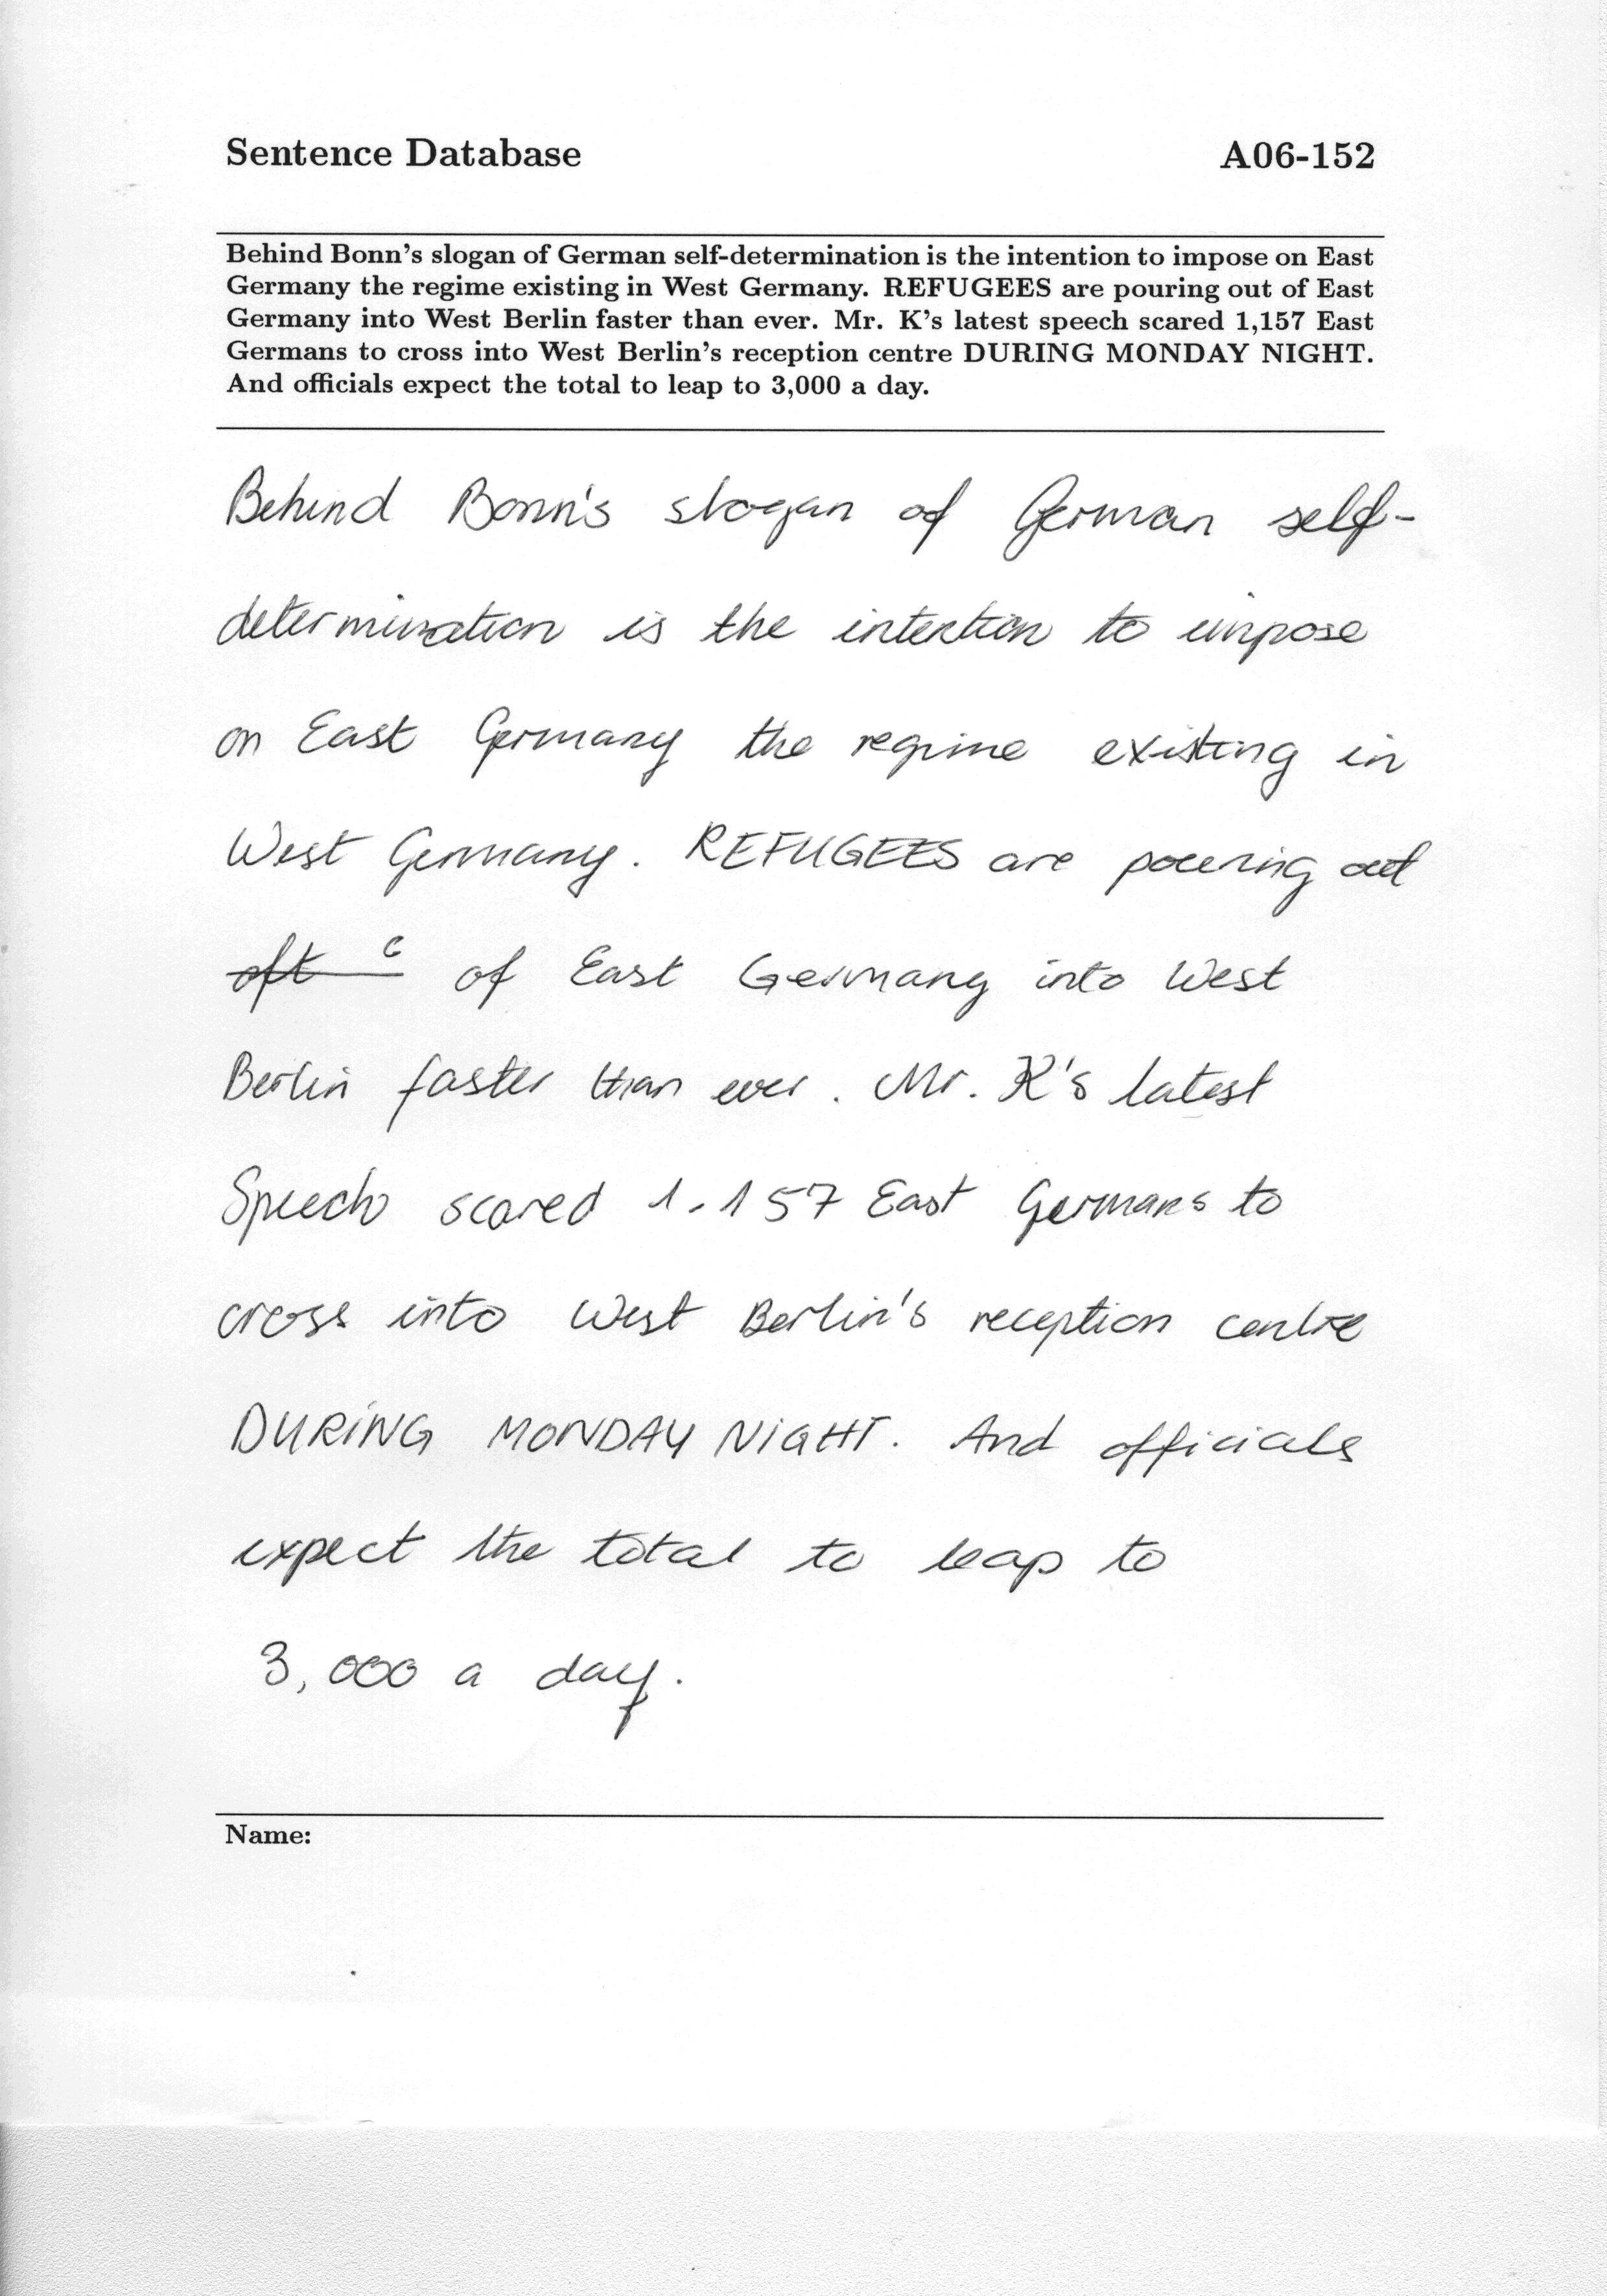 Sentence Database A06-152
Behind Bonn's slogan of German self-determination is the intention to impose on East
Germany the regime existing in West Germany. REFUGEES are pouring out of East
Germany into West Berlin faster than ever. Mr. K's latest speech scared 1,157 East
Germans to cross into West Berlin's reception centre DURING MONDAY NIGHT.
And officials expect the total to leap to 3,000 a day.
Behind Bonn's slogan of German self-
determination is the intention to impose
on East Germany the regime existing in
West Germany. REFUGEES are pouring out
of East Germany into West
Berlin faster than ever. Mr. K's latest
Speech scared 1.157 East Germans to
cross into West Berlin's reception centre
DURING MONDAY NIGHT. And officials
expect the total to leap to
3,000 a day.
Name: